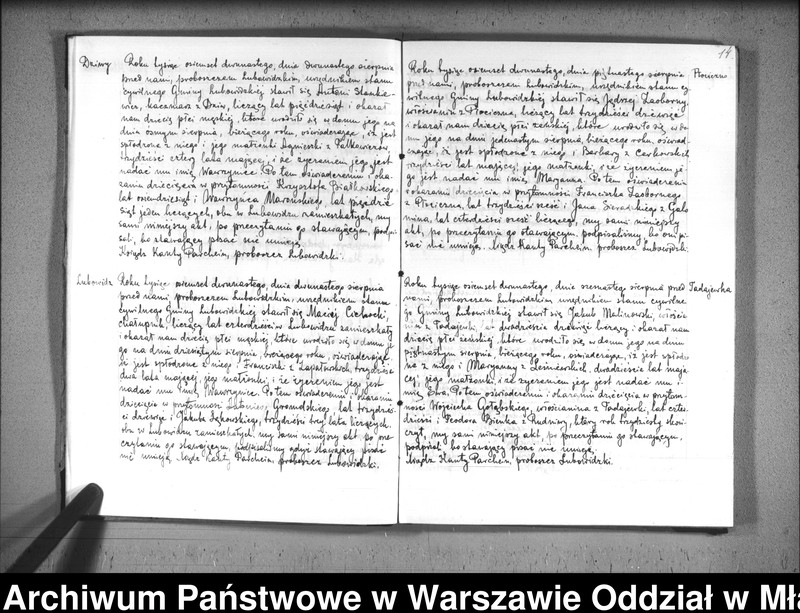 14.
Dziwy
Roku tysiąc osiemset dwunastego, dnia dwunastego sierpnia
przed nami, proboszczem Lubowidzkim, urzędnikiem stanu
cywilnego Gminy Lubowidzkiej stawił się Antoni Stanke-
wicz, karczmarz z Dziw, liczący lat pięćdziesiąt i okazał
nam dziecię płci męskiej, które urodziło się w domu jego na
dniu ósmym sierpnia, bieżącego roku, oświadczając, iż jest
spłodzone z niego i jego małżonki Agnieszki z
trzydzieści cztery lata mającej, i że życzeniem jego jest
nadać mu imię Wawrzyniec. Po tem oświadczeniu i oka-
zaniu dziecięcia w przytomności Krzysztofa Białkowskiego,
lat osiemdziesiąt i Wawrzyńca Marońskiego, lat pięćdzie-
siąt jeden liczących, obu w Lubowidzu zamieszkałych, my
sami niniejszy akt, po przeczytaniu go stawającym, podpi-
sali, bo stawający pisać nie umieją.
Ksiądz Kanty Parcheim, proboszcz Lubowidzki.
Lubowidz
Roku tysiąc osiemset dwunastego, dnia dwunastego sierpnia
przed nami proboszczem Lubowidzkim, urzędnikiem stanu
cywilnego Gminy Lubowidzkiej stawił się Maciej Cichocki,
chałupnik, liczący lat czterdzieści w Lubowidzu zamieszkały
i okazał nam dziecię płci męskiej, które urodziło się w domu je-
go na dniu dziesiątym sierpnia, bieżącego roku, oświadczając,
iż jest spłodzone z niego i Franciszki z trzydzieści
dwa lata mającej, jego małżonki, i że życzeniem jego jest
nadać mu imię Wawrzyniec. Po tem oświadczeniu i okazaniu
dziecięcia w przytomności Gromulskiego, lat trzydzie-
ści dziewięć i Jakuba trzydzieści trzy lata liczących,
obu w Lubowidzu zamieszkałych, my sami niniejszy akt, po prze-
czytaniu go stawającym, podpisaliśmy gdyż stawający pisać
nie umieją. Ksiądz Kanty Parcheim, proboszcz Lubowidzki.
Płociczno
Roku tysiąc osiemset dwunastego, dnia piętnastego sierpnia
przed nami, proboszczem Lubowidzkim, urzędnikiem stanu cy-
wilnego Gminy Lubowidzkiej stawił się Jędrzej Zachorny
włościanin z Płociczna, liczący lat trzydzieści dziewięć
i okazał nam dziecię płci żeńskiej, które urodziło się w do-
mu jego na dniu jedenastym sierpnia, bieżącego roku, oświad-
czając, iż jest spłodzone z niego i Barbary z Cerkowskich
trzydzieści lat mającej, jego małżonki, i że życzeniem je-
go jest nadać mu imię Maryanna. Po tem oświadczeniu
i okazaniu dziecięcia w przytomności Franciszka
z Płociczna, lat trzydzieści sześć i Jana Sieradzkiego z
lat czterdzieści sześć liczącego, my sami niniejszy
akt, po przeczytaniu go stawającym, podpisaliśmy, bo oni pi-
sać nie umieją. Ksiądz Kanty Parcheim, proboszcz Lubowidzki.
Tadajewka
Roku tysiąc osiemset dwunastego, dnia szesnastego sierpnia przed
nami, proboszczem Lubowidzkim, urzędnikiem stanu cywilne-
go Gminy Lubowidzkiej stawił się Jakub Malinowski, włościa-
nin z Tadajewki, lat dwadzieścia dziewięć liczący i okazał nam
dziecię płci żeńskiej, które urodziło się w domu jego na dniu
piętnastym sierpnia, bieżącego roku, oświadczając, iż jest spłodzo-
ne z niego i Maryanny z dwadzieścia lat mają-
cej, jego małżonki, i że życzeniem jego jest nadać mu i-
mię Ewa. Po tem oświadczeniu i okazaniu dziecięcia w przytom-
ności Wojciecha Gołębskiego, włościanina z Tadajewki, lat czter-
dzieści i Teodora Bieńka z Rudniny, który rok trzydziesty skoń-
czył, my sami niniejszy akt, po przeczytaniu go stawającym,
podpisał, bo stawający pisać nie umieją.
Ksiądz Kanty Parcheim, proboszcz Lubowidzki.
Archiwum Państwowe w Warszawie Oddział w Mła